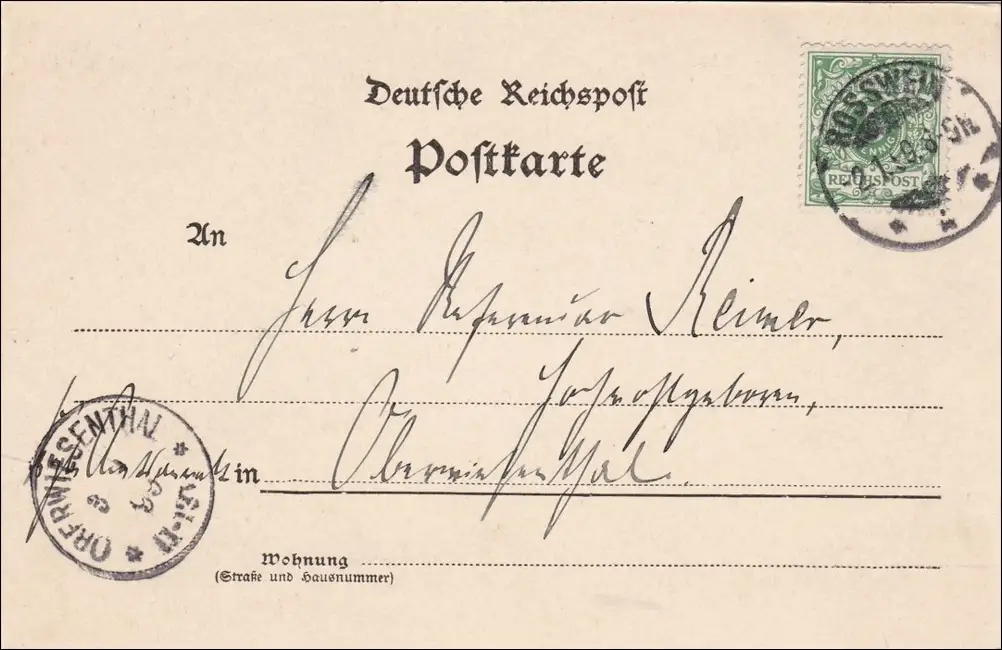 Deutsche Reichspost
Postkarte
ROSSWEIN
REICHSPOST
An
Herrn Referendar Reimer,
Hochwohlgeboren,
in Oberwiesenthal.
OBERWIESENTHAL
Wohnung
(Straße und Hausnummer)